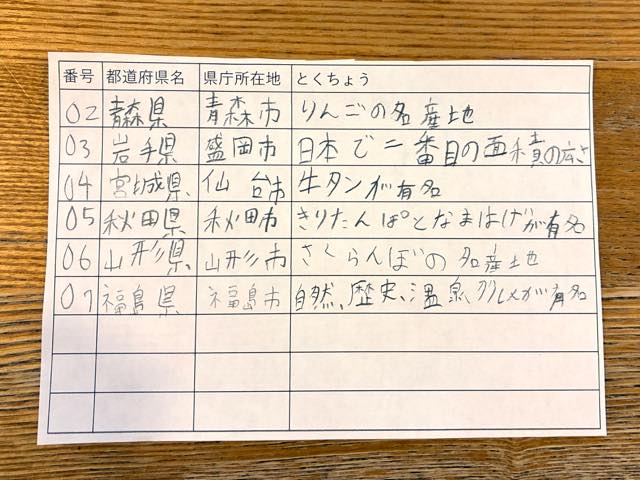 番号 都道府県名 県庁所在地 とくちょう
02 青森県 青森市 りんごの名産地
03 岩手県 盛岡市 日本で二番目の面積の広さ
04 宮城県 仙台市 牛タンが有名
05 秋田県 秋田市 きりたんぽとなまはげが有名
06 山形県 山形市 さくらんぼの名産地
07 福島県 福島市 自然、歴史、温泉、が有名